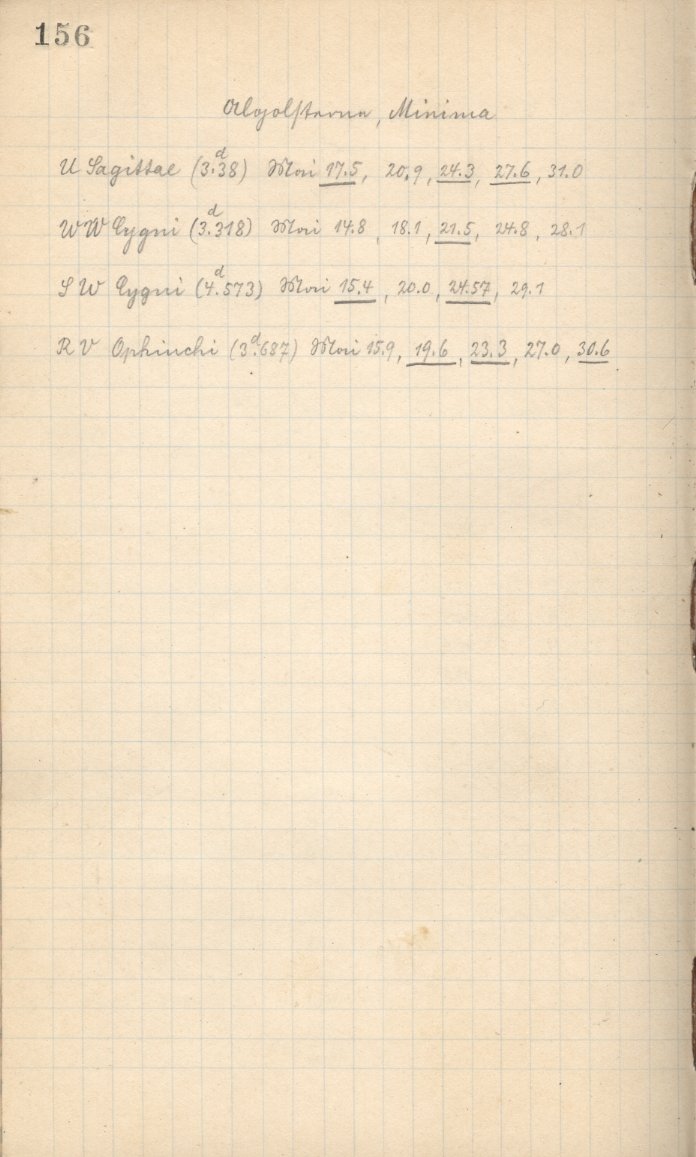 156
Algolsterne, Minima
U Sagittae (3.ᵈ38) Mai 17.5, 20.9, 24.3, 27.6, 31.0
WW Cygni (3.ᵈ318) Mai 14.8, 18.1, 21.5, 24.8, 28.1
SW Cygni (4.ᵈ573) Mai 15.4, 20.0, 24.57, 29.1
RV Ophiuchi (3.ᵈ687) Mai 15.9, 19.6, 23.3, 27.0, 30.6